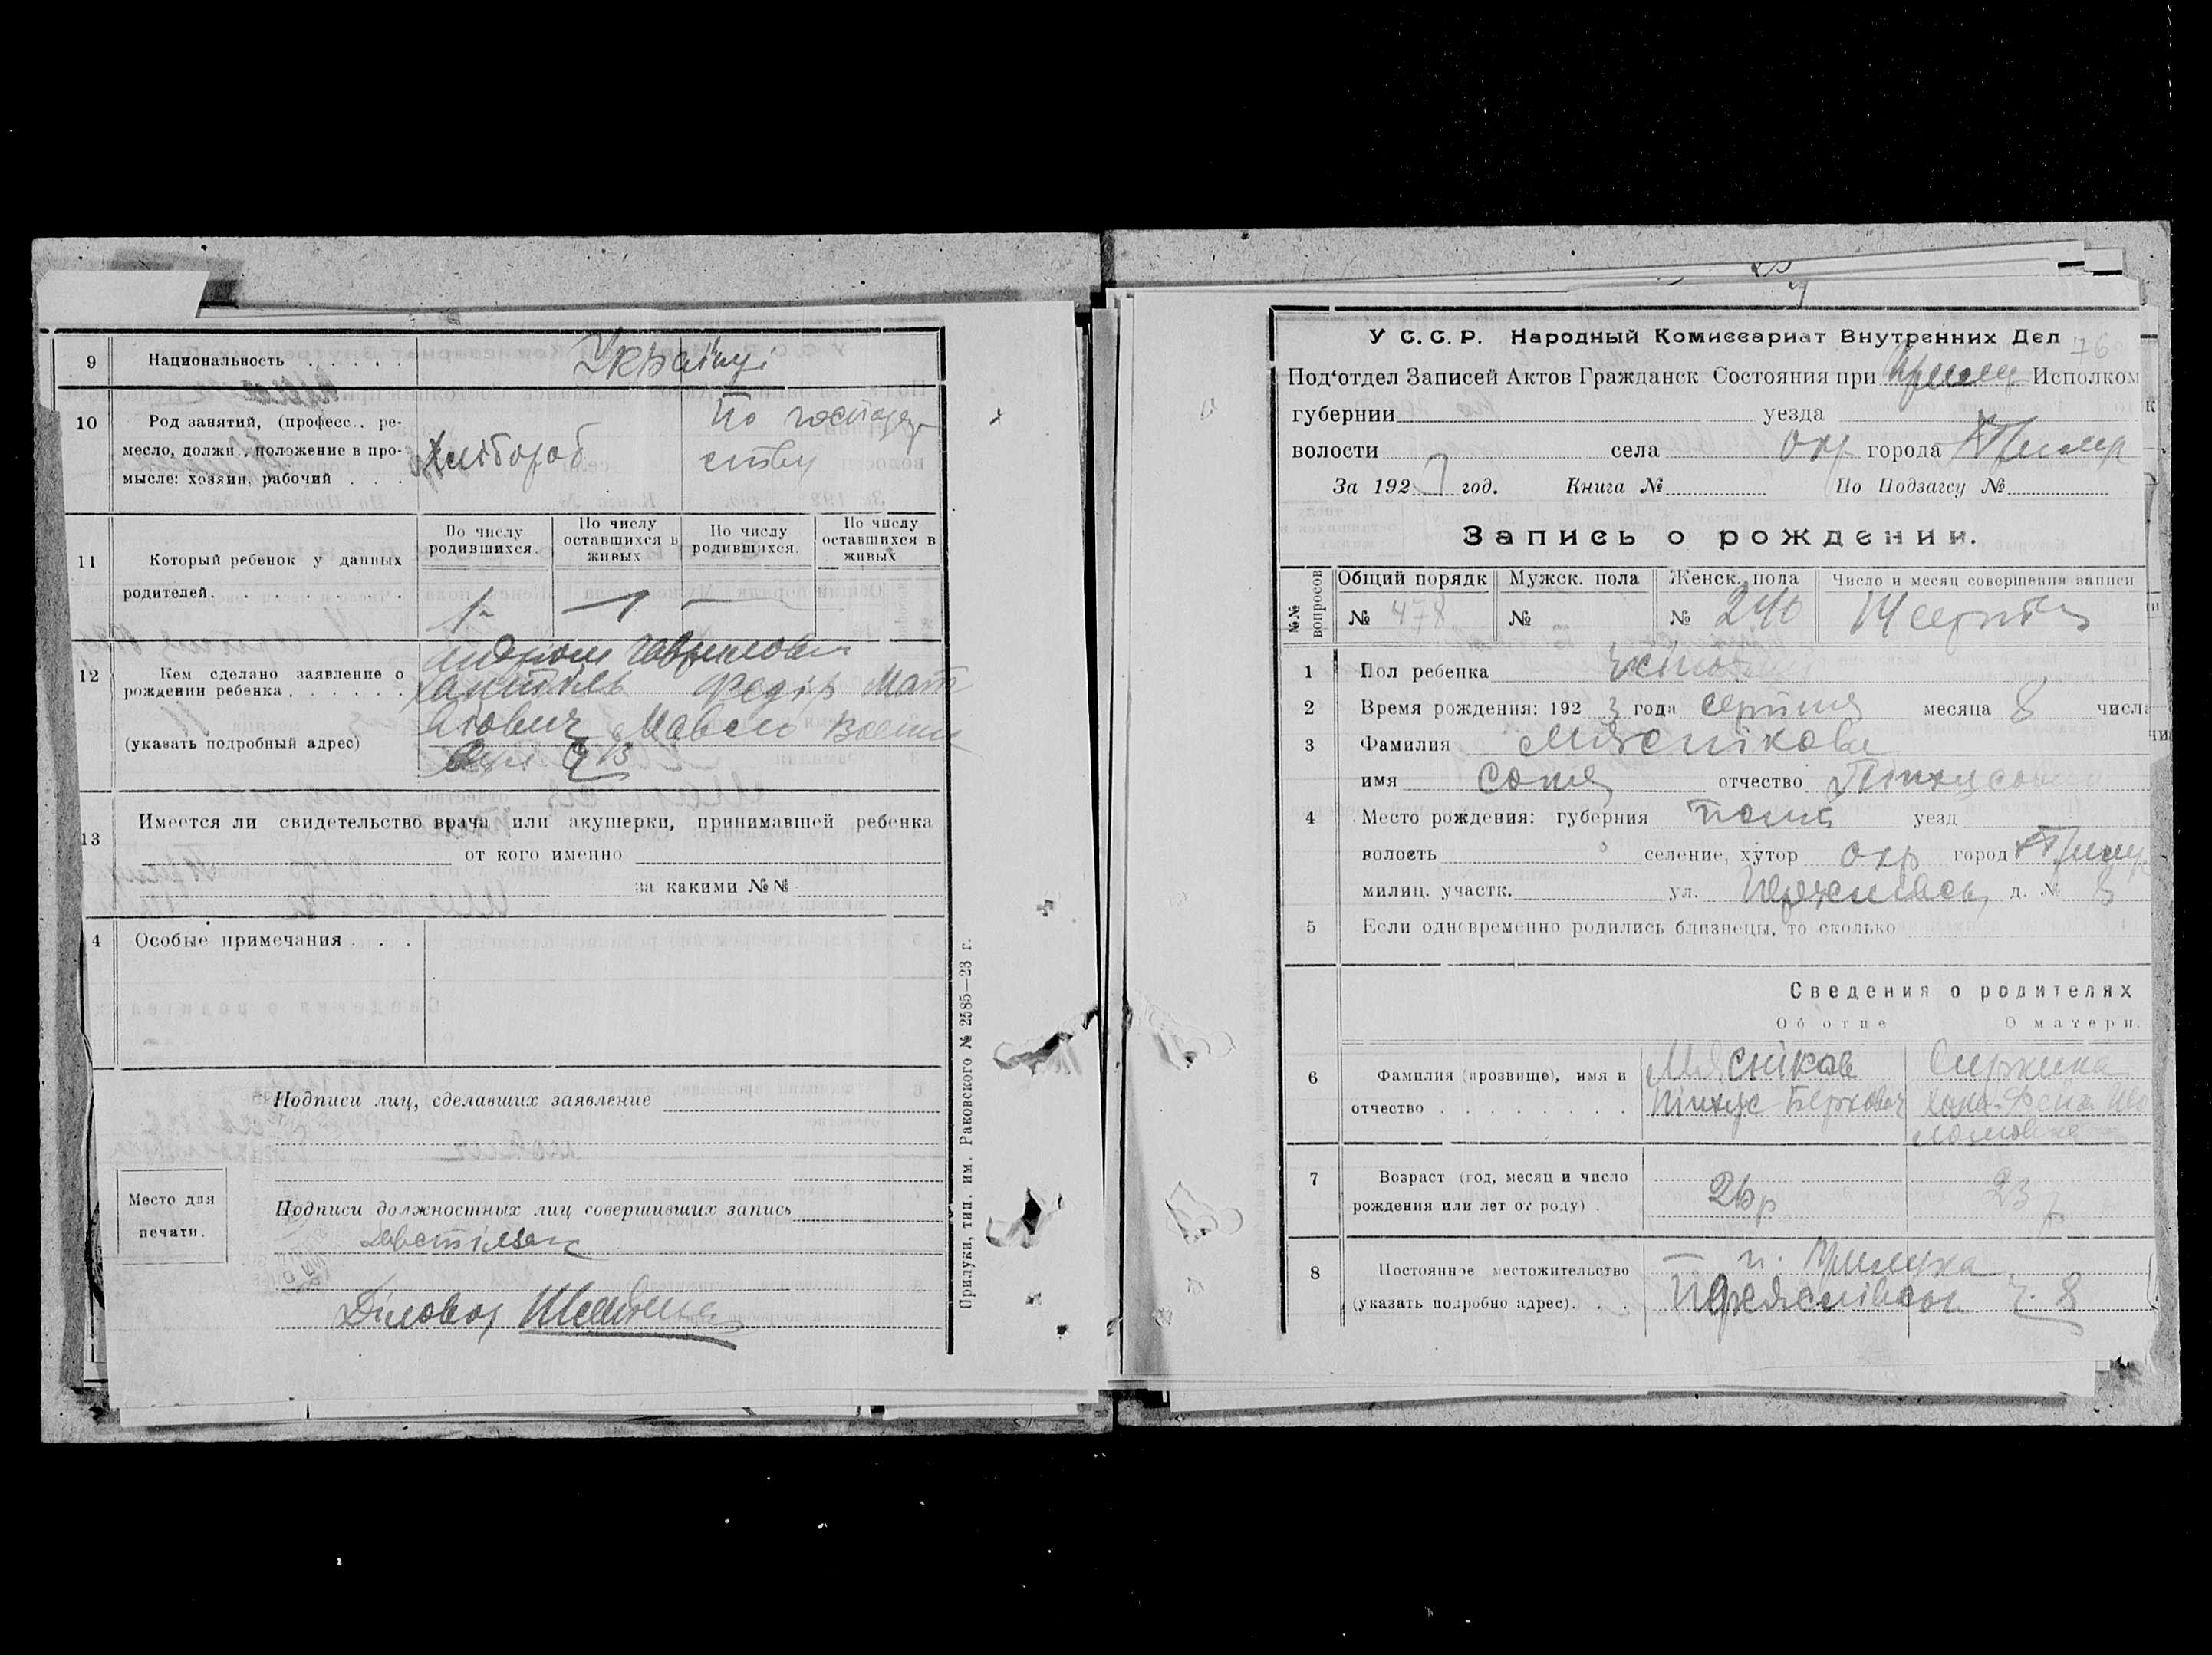 9 Национальность . . . . . Українці
10 Род занятий, (професс.. ре-
месло, должн., положение в про-
мысле: хозяин, рабочий . . .
Хлібороб
по господар
ству
11 Который ребенок у данных
родителей . . . . . . .
По числу родившихся.
По числу оставшихся в живых
По числу родившихся.
По числу оставшихся в живых
12 Кем сделано заявление о
рождении ребенка . . . . . .
(указать подробный адрес)
Федір
13 Имеется ли свидетельство врача или акушерки, принимавшей ребенка
от кого именно
за какими №№
4 Особые примечания . . .
Подписи лиц, сделавших заявление
Место для
печати.
Подписи должностных лиц совершивших запись
Діловод
Прилуки, тип. им. Раковского № 2585—23 г.
76
У С. С. Р. Народный Комиссариат Внутренних Дел
Под'отдел Записей Актов Гражданск Состояния при Прилу Исполком
губернии уезда
волости села Окр города Прилук
За 192 год. Книга № По Подзагсу №
Запись о рождении.
№№ вопросов
Общий порядк
№ 478
Мужск. пола
№
Женск. пола
№ 240
Число и месяц совершения записи
14 серпня
1 Пол ребенка
2 Время рождения: 192 3 года серпня месяца 8 числа
3 Фамилия Мясникова
имя Соня отчество Пинхусовна
4 Место рождения: губерния Полт уезд
волость селение, хутор окр город Прилук
милиц. участк. ул. д. № 8
5 Если одновременно родились близнецы, то сколько
Сведения о родителях
Об отце О матери.
6 Фамилия (прозвище), имя и
отчество . . . . . . . .
Мясніков
Пинхус Беркович
Сиркина
Хана-Фейга
7 Возраст (год, месяц и число
рождения или лет от роду) .
26 р
23 р
8 Постоянное местожительство
(указать подробно адрес). . .
г. Прилука
ч. 8